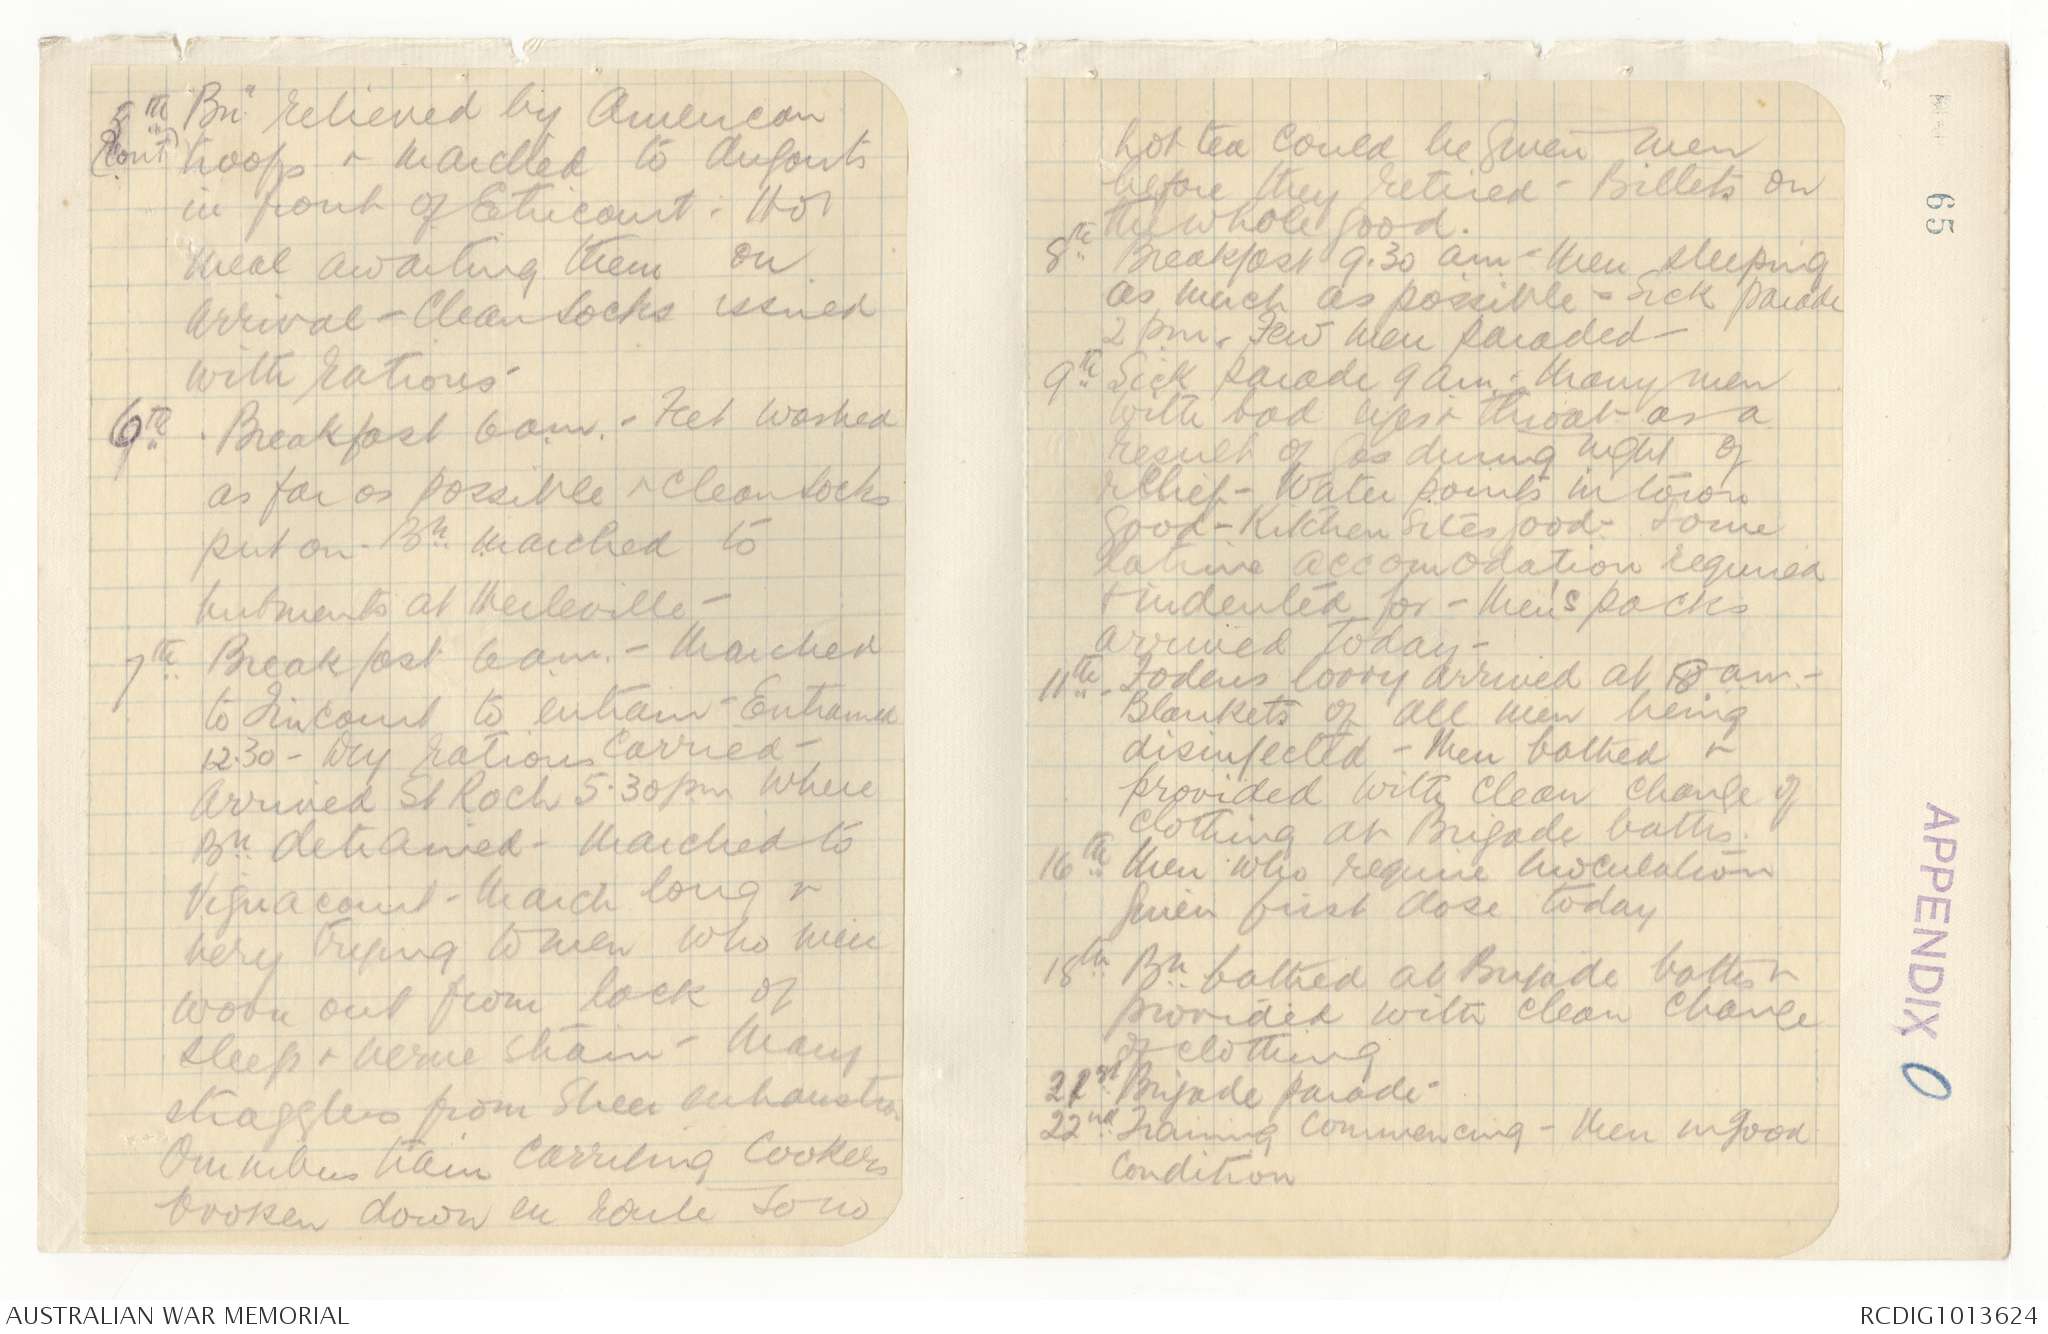 5th Bn relieved by American
(Cont) troops & marched to dugouts
in front of Etricourt. Hot
meal awaiting them on
arrival - Clean socks issued
with rations -
6th Breakfast 6 am. - Feet washed
as far as possible & clean socks
put on - Bn marched to
hutments at Herleville -
7th Breakfast 6 am. - Marched
to Tincourt to entrain - Entrained
12.30 - Dry rations carried -
Arrived St Roch 5.30 pm where
Bn detrained - Marched to
Vignacourt - March long &
very trying to men who were
worn out from lack of
sleep & nerve strain - Many
stragglers from sheer exhaustion
Omnibus train carrying cookers
broken down en route so no
hot tea could be given men
before they retired - Billets on
the whole good.
8th Breakfast 9.30 am - Men sleeping
as much as possible - Sick parade
2 pm. Few men paraded -
9th Sick parade 9 am. - Many men
with bad eyes & throat as a
result of gas during night of
relief - Water points in town
good - Kitchen sites good - Some
latrine accomodation required
& indented for - Men's packs
arrived today -
11th - Fodens lorry arrived at 8 am. -
Blankets of all men being
disinfected - Men bathed &
provided with clean change of
clothing at Brigade baths.
16th Men who require inoculation
given first dose today
18th Bn bathed at Brigade baths &
provided with clean change
of clothing
21st Brigade parade -
22nd Training commencing - Men in good
condition
65
APPENDIX O
AUSTRALIAN WAR MEMORIAL
RCDIG1013624